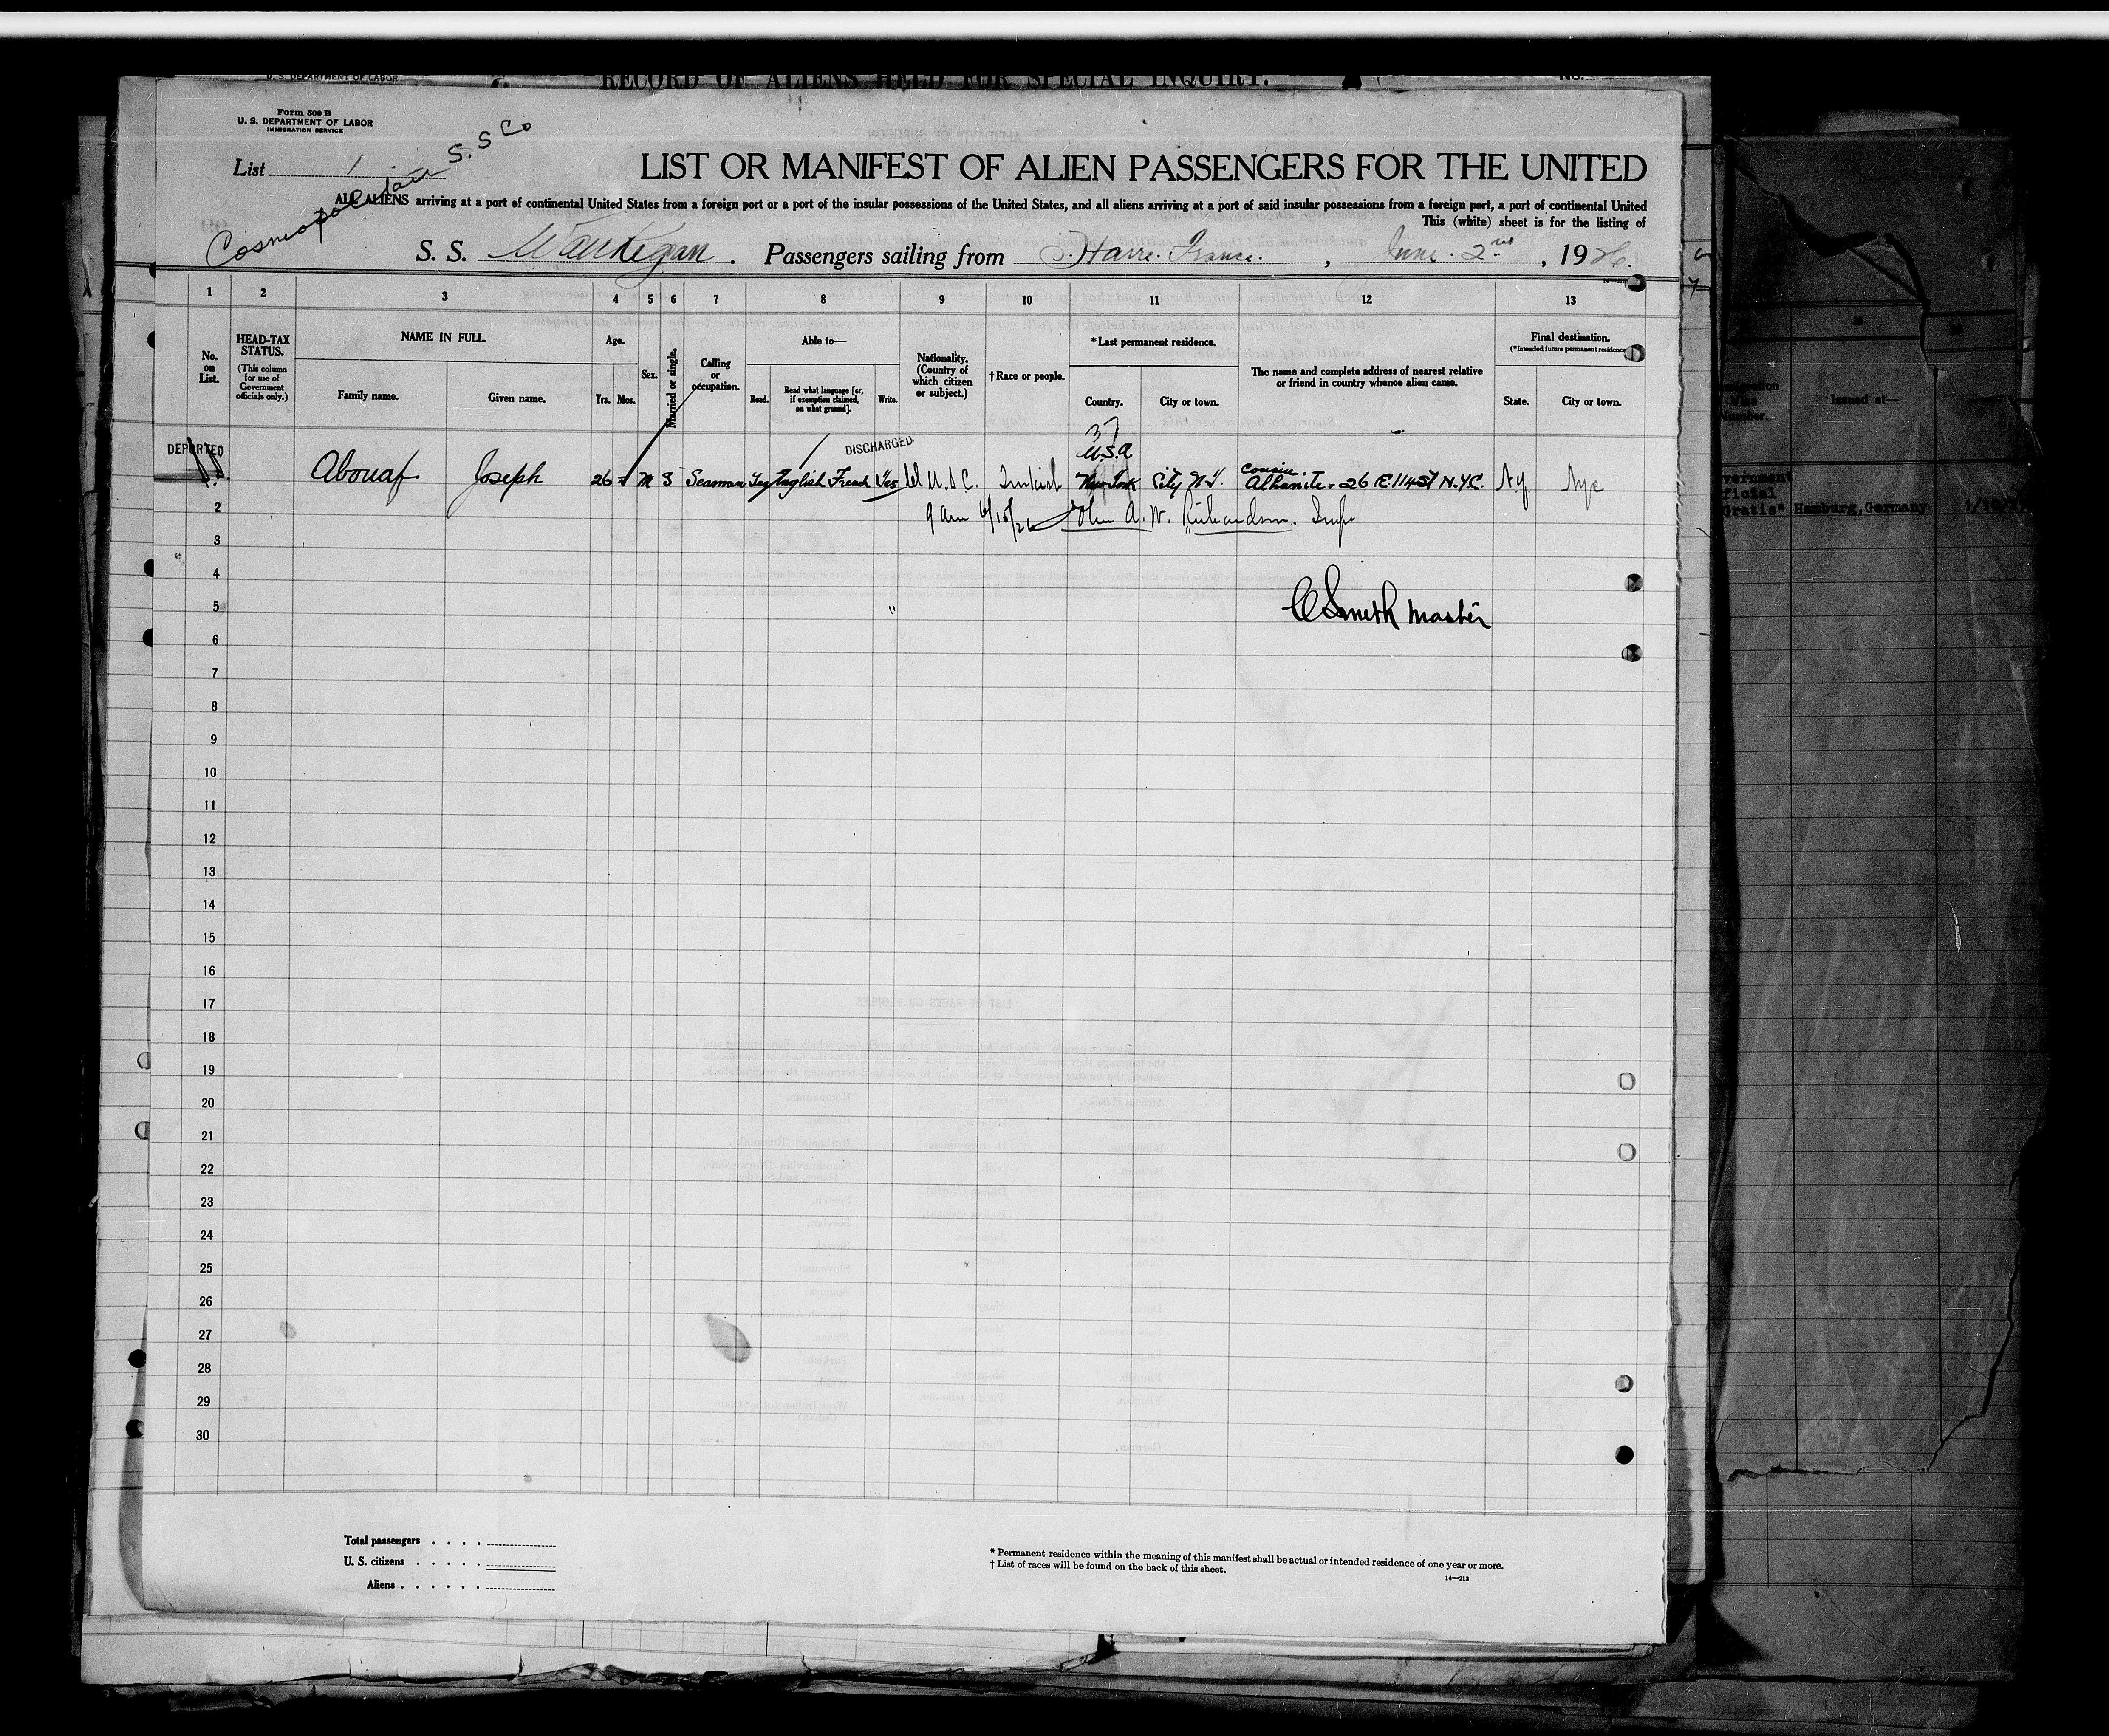 U. S. DEPARTMENT OF LABOR
RECORD OF ALIENS HELD FOR SPECIAL INQUIRY.
NO.
Form 500 B
U. S. DEPARTMENT OF LABOR
IMMIGRATION SERVICE
List 1
Cosmopolitan S. S Co
LIST OR MANIFEST OF ALIEN PASSENGERS FOR THE UNITED
ALL ALIENS arriving at a port of continental United States from a foreign port or a port of the insular possessions of the United States, and all aliens arriving at a port of said insular possessions from a foreign port, a port of continental United
This (white) sheet is for the listing of
S. S. Waukegan. Passengers sailing from Havre. France. , June. 2nd , 1926.
1 2 3 4 5 6 7 8 9 10 11 12 13
No. on List.
HEAD-TAX STATUS.
(This column for use of Government officials only.)
NAME IN FULL.
Family name. Given name.
Age.
Yrs. Mos.
Sex.
Married or single.
Calling or occupation.
Able to—
Read. Read what language [or, if exemption claimed, on what ground]. Write.
Nationality. (Country of which citizen or subject.)
† Race or people.
*Last permanent residence.
Country. City or town.
The name and complete address of nearest relative or friend in country whence alien came.
Final destination.
(*Intended future permanent residence
State. City or town.
37
DEPORTED
DISCHARGED
U.S.A
1 Abouaf Joseph 26 M S Seaman Yes English French Yes Turkish New York City N.Y. cousin. Alhanite. 26 E. 114 St N.Y.C. N.Y. Nyc
2 9 am 6/15/26 John A. W. Richardson. Insp
3
4
5 C Smith master
6
7
8
9
10
11
12
13
14
15
16
17
18
19
20
21
22
23
24
25
26
27
28
29
30
Total passengers
U. S. citizens
Aliens
* Permanent residence within the meaning of this manifest shall be actual or intended residence of one year or more.
† List of races will be found on the back of this sheet.
14—213
Issued at—
Number.
Gratis" Hamburg, Germany